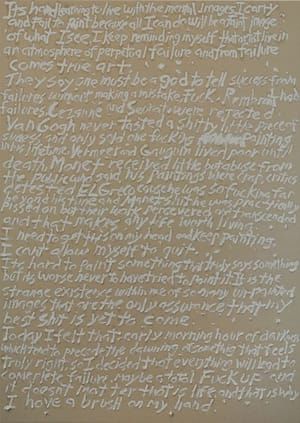 It's hard learning to live with the mental images I carry
and fail to paint because all I can do will be a faint image
of what I see. I keep reminding myself that art live in
an atmosphere of perpetual failure and from failure
comes true art.
They say one must be a god to tell success from
failures without making a mistake. Fuck. Rembrandt had
failures. Cezanne and Seurat were rejected
Van Gogh never tasted a shitty little piece of
success and only sold one fucking painting
in his lifetime. Vermeer and Gauguin poor until
death. Munst received little but abuse from
the public who said his paintings were crap. Critics
detested EL Greco cause he was so fuckin far
beyond his time and Manet's life was practically
on but their work persevered and transcended
and that makes any life worth living.
I need to get this in my head and keep painting.
I can't allow myself to quit.
It's hard to paint something that truly says something
but its worse never to have tried to paint it. It is the
strange existence within me of so many unpainted
images that are the only assurance that my
best shit is yet to come.
Today I felt that early morning hour of darkness
which tend to precede the dawning of something that feels
truly right, so I decided that everything will lead to
complete failure, maybe a total fuck up and
it doesn't matter that is life and that is why
I have a brush in my hand.